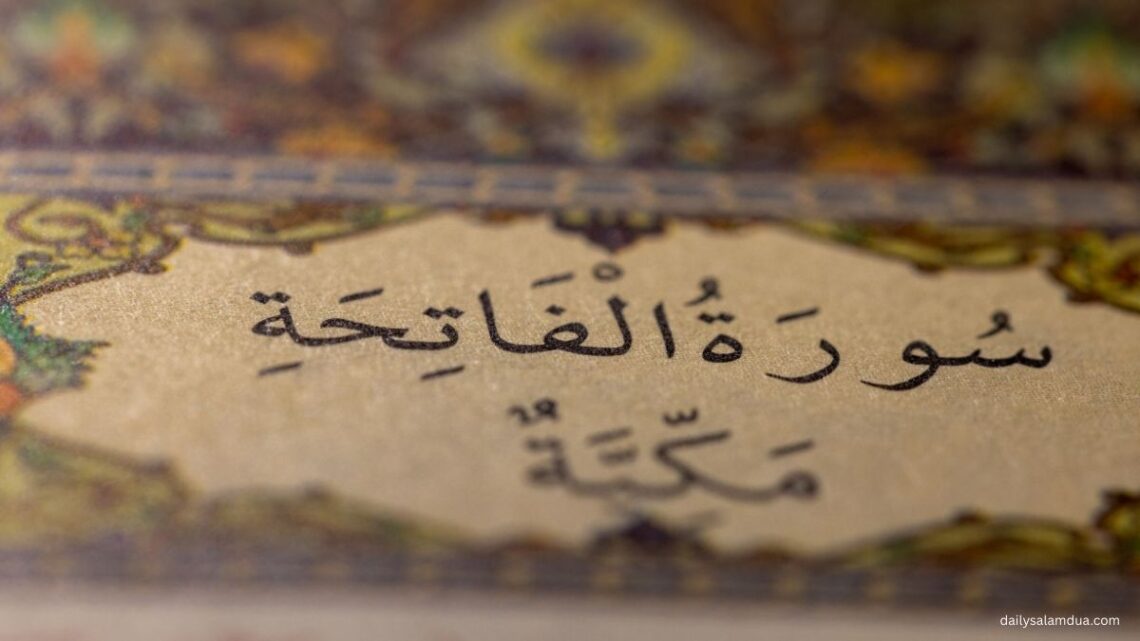 سُورَةُ الْفَاتِحَةِ
مَكِّيَّةٌ
dailysalamdua.com